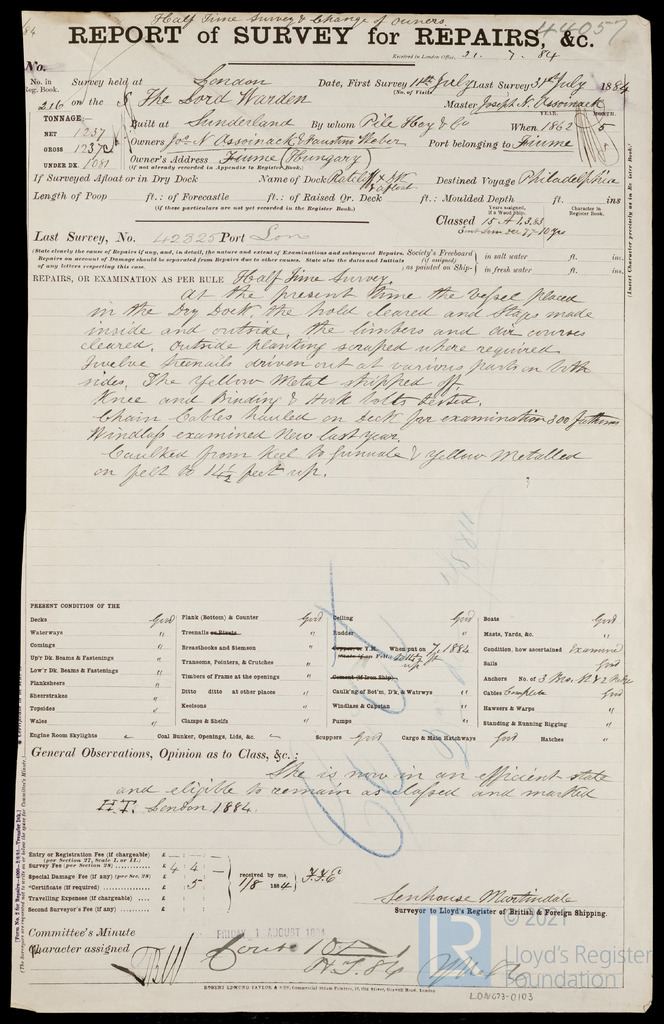 Half Time Survey & Change of Owners
44057
REPORT of SURVEY for REPAIRS, &c.
Received in London Office, 21. 7. 84
No.
No. in Reg. Book. Survey held at London Date, First Survey 11th July Last Survey 31st July 1884
(No. of Visits)
216 on the S The Lord Warden Master Joseph N. Assoinack
TONNAGE: YEAR. MONTH.
NET 1237 Built at Sunderland By whom Pile Hay & Co When 1862 5
GROSS 1237 Owners Jos. N Assoinack & Faustin Weber Port belonging to Fiume
UNDER DK. 1081 Owner's Address Fiume (Hungary)
(If not already recorded in Appendix to Register Book.)
If Surveyed Afloat or in Dry Dock Name of Dock & afloat Destined Voyage Philadelphia
Length of Poop ft.: of Forecastle ft.: of Raised Qr. Deck ft.: Moulded Depth ft. ins
(If these particulars are not yet recorded in the Register Book.)
Years assigned, if a Wood Ship. Character in Register Book.
Classed 15 A1, 3,63
Last Survey, No. 42325 Port Lon
(State clearly the cause of Repairs if any, and, in detail, the nature and extent of Examinations and subsequent Repairs. Repairs on account of Damage should be separated from Repairs due to other causes. State also the dates and initials of any letters respecting this case.
Society's Freeboard (if assigned) as painted on Ship- in salt water ft. ins.
in fresh water ft. ins.
REPAIRS, OR EXAMINATION AS PER RULE Half Time Survey.
At the present time the vessel placed
in the Dry Dock, the hold cleared and Stages made
inside and outside. the limbers and air courses
cleared. Outside planking scraped where required
Twelve treenails driven out at various parts on both
sides. The Yellow Metal stripped off.
Knee and Binding & Hook bolts tested.
Chain Cables hauled on deck for examination 300 fathoms
Windlass examined New last year.
Caulked from keel to Gunwale & Yellow Metalled
on felt to 14½ feet up.
PRESENT CONDITION OF THE
Decks Good Plank (Bottom) & Counter Good Ceiling Good Boats Good
Waterways " Treenails or Rivets " Rudder " Masts, Yards, &c. "
Comings " Breasthooks and Stemson " Copper, or Y.M. When put on 7, 1884 Condition, how ascertained Examined
Up'r Dk. Beams & Fastenings " Transoms, Pointers, & Crutches " Sails Good
Low'r Dk. Beams & Fastenings " Timbers of Frame at the openings " Cement (if Iron Ship) Anchors No. of 3
Planksheers " Ditto ditto at other places " Caulk'ng of Bot'm, D'k, & Watrwys " Cables Complete Good
Sheerstrakes " Keelsons " Windlass & Capstan " Hawsers & Warps "
Topsides " Clamps & Shelfs " Pumps " Standing & Running Rigging "
Wales "
Engine Room Skylights Coal Bunker, Openings, Lids, &c. Scuppers Good Cargo & Main Hatchways Good Hatches "
General Observations, Opinion as to Class, &c.:
She is now in an efficient state
and eligible to remain as classed and marked
H.T. London 1884.
Entry or Registration Fee (if chargeable) £
(per Section 27, Scale 1, or 11.)
Survey Fee (per Section 28) £ 4 4 -
Special Damage Fee (if any) (per Sec. 28) £
*Certificate (if required) £ 5
Travelling Expenses (if chargeable) £
Second Surveyor's Fee (if any) £
received by me, 1/8 1884
Senhouse Martindale
Surveyor to Lloyd's Register of British & Foreign Shipping.
Committee's Minute FRIDAY 1 AUGUST 1884
Character assigned
H.T. 84
ROBERT EDMUND TAYLOR & SON, Commercial Steam Printers, 19, Old Street, Goswell Road, London
© 2021
LR
Lloyd's Register
Foundation
LON673-0103